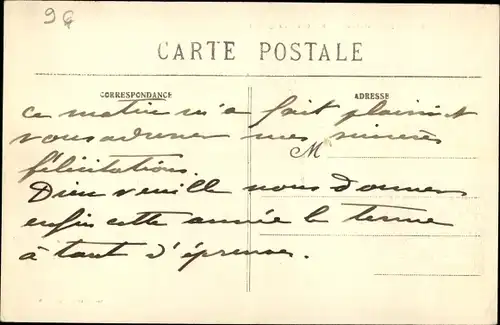 96
CARTE POSTALE
CORRESPONDANCE
ADRESSE
ce matin m'a fait plaisir et
vous adresser mes sincères
M
félicitations.
Dieu veuille nous donner
enfin cette année le terme
à tant d'épreuves.